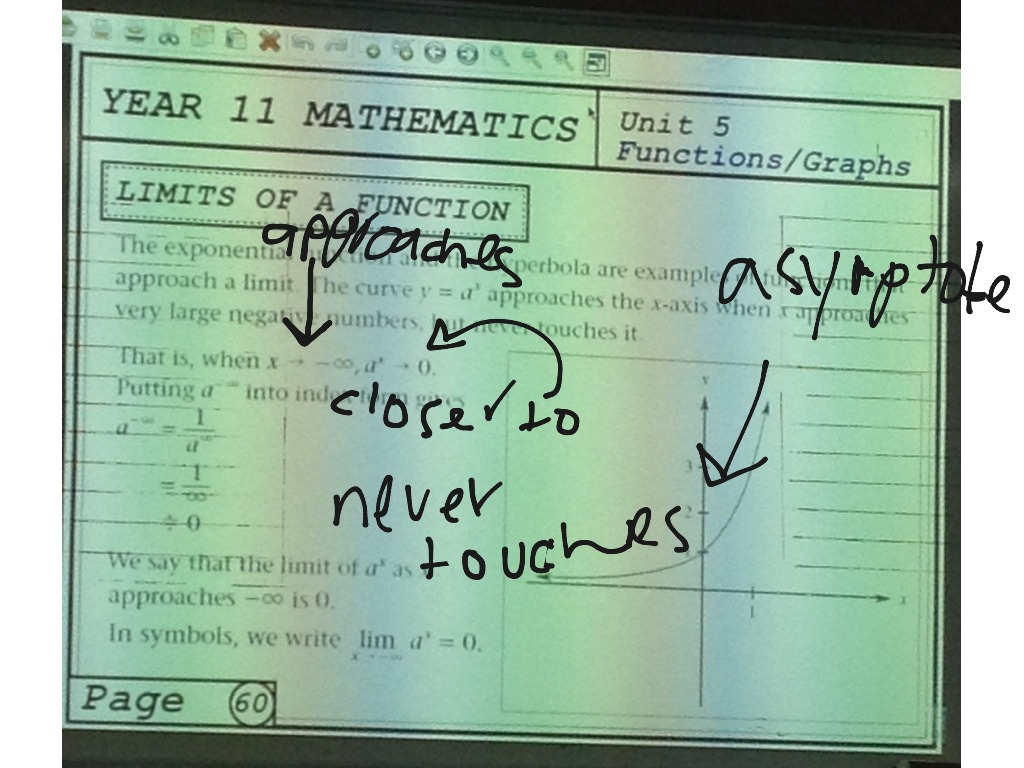 YEAR 11 MATHEMATICS
Unit 5
Functions/Graphs
LIMITS OF A FUNCTION
approaches
The exponential and the hyperbola are examples of functions that
approach a limit. The curve y = aˣ approaches the x-axis when x approaches
very large negative numbers, but never touches it.
asymptote
That is, when x → −∞, aˣ → 0.
closer to
Putting a⁻∞ into index form gives
a⁻∞ = 1/a∞
= 1/∞
÷ 0
never
touches
3
2
y
x
1
We say that the limit of aˣ as
approaches −∞ is 0.
In symbols, we write lim aˣ = 0.
x → −∞
Page 60